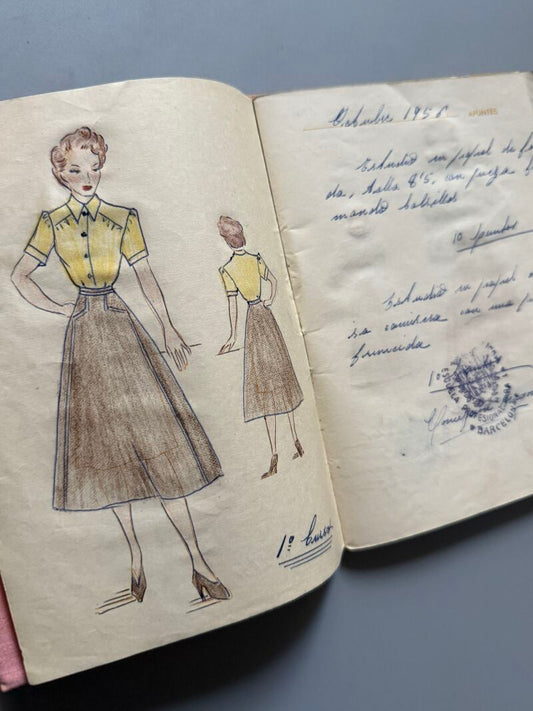 1º Curso
Octubre 195
APUNTES
Estudio en papel de fa
da, talla 85, con pieza
mando bolsillos
10 puntos
Estudio en papel
sa camisera con una p
fruncida
BARCELON